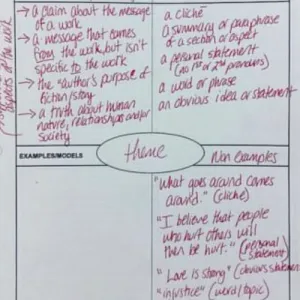 → a claim about the message
of a work
→ a message that comes
from the work, but isn't
specific to the work
→ the "author's purpose" of
fiction story
→ a truth about human
nature, relationships and/or
society
aspects of the work
a cliché
a summary or paraphrase
of a section or aspect
a personal statement
(no 1st or 2nd pronouns)
a word or phrase
an obvious idea or statement
EXAMPLES/MODELS
theme
Non examples
"What goes around comes
around." (cliche)
"I believe that people
who hurt others will
then be hurt." (personal
statement)
"Love is strong" (obvious statement
"injustice" (word/topic)